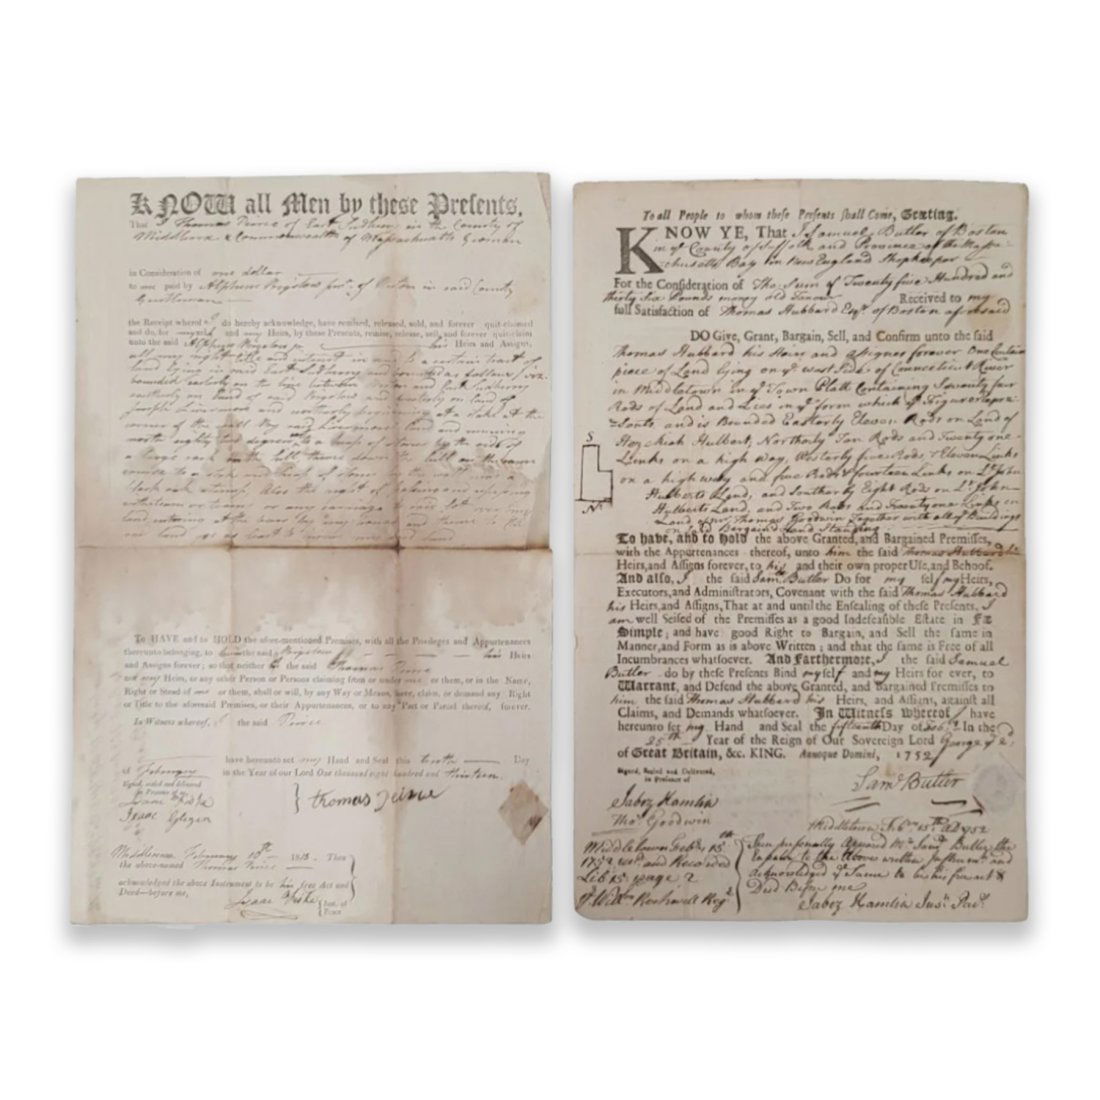 KNOW all Men by these Presents,
That I Thomas Peirce of East Sudbury in the County of
Middlesex & Commonwealth of Massachusetts Yeoman
in Consideration of one dollar
to me paid by Alpheus Bigelow junr. of in said County
Gentleman
the Receipt whereof I do hereby acknowledge, have remised, released, sold, and forever quit-claimed
and do, for myself and my Heirs, by these Presents, remise, release, sell, and forever quit-claim
unto the said Alpheus Bigelow jr his Heirs and Assigns,
all my right title and interest in and to a certain tract of
land lying in said East Sudbury and bounded as follows viz.
bounded easterly on the line between and East Sudbury
easterly on land of said Bigelow and on land of
Joseph Livermore and westerly beginning at a stake at the
corner of the wall by said Livermores land and running
north eighty degrees to a heap of stones by the side of
a large rock on the hill thence down the hill on the same
course to a stake and heap of stones
black oak stump. Also the right of
To HAVE and to HOLD the afore-mentioned Premises, with all the Privileges and Appurtenances
thereunto belonging, to him the said Bigelow his Heirs
and Assigns forever; so that neither I the said Thomas Peirce
my Heirs, or any other Person or Persons claiming from or under me or them, or in the Name,
Right or Stead of me or them, shall or will, by any Way or Means, have, claim, or demand any Right
or Title to the aforesaid Premises, or their Appurtenances, or to any Part or Parcel thereof, forever.
In Witness whereof, I the said Peirce
have hereunto set my Hand and Seal this tenth Day
of February in the Year of our Lord One thousand eight hundred and thirteen.
Signed, sealed and delivered
in Presence of us,
Isaac Fiske
Isaac
Thomas Peirce
Middlesex February 10th 1813. Then
the above-named Thomas Peirce
acknowledged the above Instrument to be his free Act and
Deed—before me,
Isaac Fiske Just. of Peace
To all People to whom these Presents shall Come, Greeting.
KNOW YE, That I Samuel Butler of Boston
in ye County of Suffolk and Province of the Massa-
chusetts Bay in New England Shopkeeper
For the Consideration of The Sum of Twenty five Hundred and
thirty Six Pounds money old Tenor Received to my
full Satisfaction of Thomas Hubbard Esqr. of Boston aforesaid
DO Give, Grant, Bargain, Sell, and Confirm unto the said
Thomas Hubbard his Heirs and assigns forever One Certain
piece of Land lying on ye west Side of Connecticut River
in Middletown in ye Town Platt Containing Seventy four
Rods of Land and Lies in ye form which ye Figure Repre-
sents and is Bounded Easterly Eleven Rods on Land of
Hezekiah Hulbert, Northerly Ten Rods and Twenty one
Links on a high way, Westerly five Rods & Eleven Links
on a highway and five Rods & fourteen Links on Lt. John
Hulberts Land, and Southerly Eight Rods on Lt. John
Hulberts Land, and Two Rods and Twenty one Links on
Land of Mr. Thomas Goodwin Together with all ye Buildings
on sd Bargained Land Standing
S
N
To have, and to hold the above Granted, and Bargained Premisses,
with the Appurtenances thereof, unto him the said Thomas Hubbard his
Heirs, and Assigns forever, to his and their own proper Use, and Behoof.
And also, I the said Samll. Butler Do for my self my Heirs,
Executors, and Administrators, Covenant with the said Thomas Hubbard
his Heirs, and Assigns, That at and until the Ensealing of these Presents, I
am well Seised of the Premisses as a good Indefeasible Estate in Fee
Simple; and have good Right to Bargain, and Sell the same in
Manner, and Form as is above Written; and that the same is Free of all
Incumbrances whatsoever. And Farthermore, I the said Samuel
Butler do by these Presents Bind my self and my Heirs for ever, to
Warrant, and Defend the above Granted, and Bargained Premisses to
him the said Thomas Hubbard his Heirs, and Assigns, against all
Claims, and Demands whatsoever. In Witness Whereof I have
hereunto set my Hand and Seal the fifteenth Day of Feb. In the
25th Year of the Reign of Our Sovereign Lord George ye 2d
of Great Britain, &c. KING. Annoque Domini, 1752
Signed, Sealed and Delivered,
in Presence of
Saml Butler
Jabez Hamlin
Tho. Goodwin
Middletown Feb. 15th
1752 and Recorded
Lib 15 page 2
Pr Willm Rockwell Regr
Middletown Febry. 15th AD 1752
Then personally Appeard Mr Saml Butler, the
to the above written Instrumt. and
Acknowledged ye Same to be his free act &
Deed Before me
Jabez Hamlin Just. Pac.